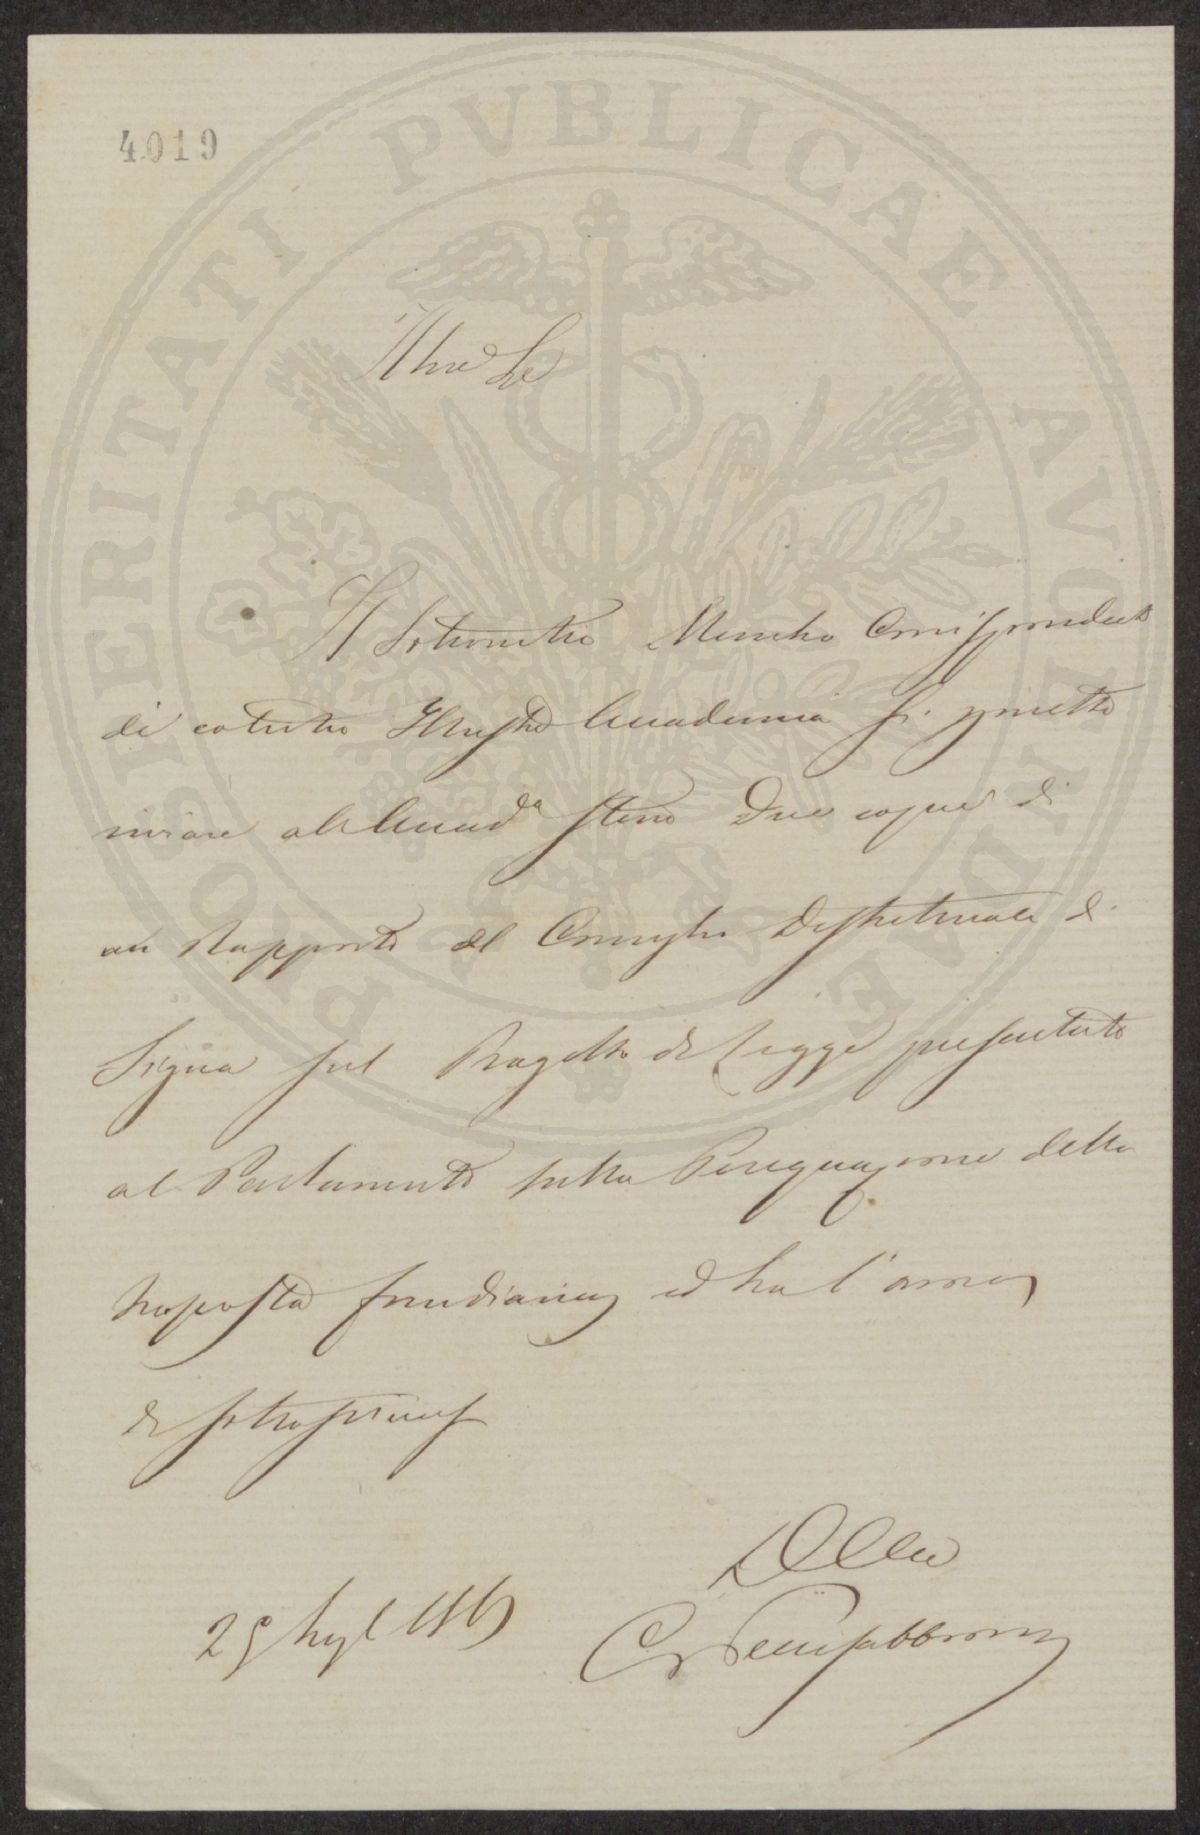 4019
PROSPERITATI PVBLICAE AVGENDAE
Il Sottoscritto Membro Corrispondente
di cotesta Illustre Accademia si permette
inviare all'Accad.a stessa due copie di
un Rapporto del Consiglio Distrettuale di
Signa sul Progetto di Legge presentato
al Parlamento sulla Perequazione della
Imposta fondiaria, ed ha l'onore
di sottoscriversi
29 Lugl 186
Pelli Fabbroni